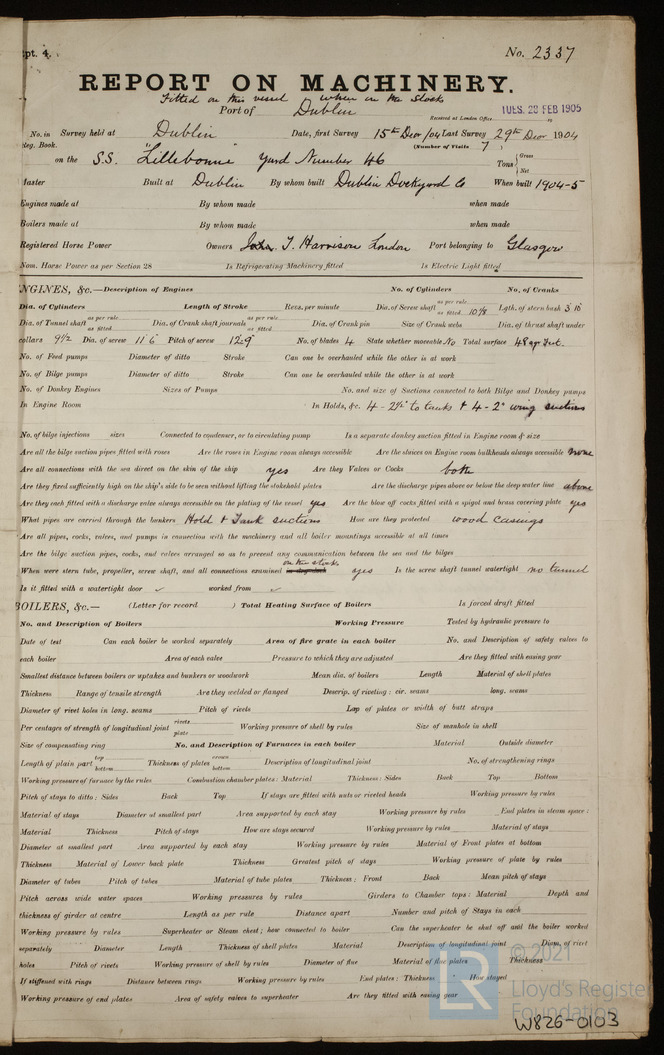 pt. 4.
No. 2337
REPORT ON MACHINERY.
Fitted on this vessel when on the stocks
Port of Dublin
Received at London Office TUES. 28 FEB 1905
No. in Survey held at Dublin Date, first Survey 15th Decr /04 Last Survey 29th Decr 1904
Reg. Book. (Number of Visits 7)
on the S.S. "Lillebonne" Yard Number 46 Tons { Gross Net
Master Built at Dublin By whom built Dublin Dockyard Co When built 1904-5
Engines made at By whom made when made
Boilers made at By whom made when made
Registered Horse Power Owners John T. Harrison London Port belonging to Glasgow
Nom. Horse Power as per Section 28 Is Refrigerating Machinery fitted Is Electric Light fitted
ENGINES, &c.—Description of Engines No. of Cylinders No. of Cranks
Dia. of Cylinders Length of Stroke Revs. per minute Dia. of Screw shaft as per rule as fitted 10 7/8 Lgth. of stern bush 3'10"
Dia. of Tunnel shaft as per rule as fitted Dia. of Crank shaft journals as per rule as fitted Dia. of Crank pin Size of Crank webs Dia. of thrust shaft under
collars 9 1/2 Dia. of screw 11'6 Pitch of screw 12'9" No. of blades 4 State whether moveable No Total surface 48 sq feet.
No. of Feed pumps Diameter of ditto Stroke Can one be overhauled while the other is at work
No. of Bilge pumps Diameter of ditto Stroke Can one be overhauled while the other is at work
No. of Donkey Engines Sizes of Pumps No. and size of Suctions connected to both Bilge and Donkey pumps
In Engine Room In Holds, &c. 4 - 2 1/2" to tanks & 4 - 2" wing suctions
No. of bilge injections sizes Connected to condenser, or to circulating pump Is a separate donkey suction fitted in Engine room & size
Are all the bilge suction pipes fitted with roses Are the roses in Engine room always accessible Are the sluices on Engine room bulkheads always accessible none
Are all connections with the sea direct on the skin of the ship yes Are they Valves or Cocks both
Are they fixed sufficiently high on the ship's side to be seen without lifting the stokehold plates Are the discharge pipes above or below the deep water line above
Are they each fitted with a discharge valve always accessible on the plating of the vessel yes Are the blow off cocks fitted with a spigot and brass covering plate yes
What pipes are carried through the bunkers Hold & Tank suctions How are they protected wood casings
Are all pipes, cocks, valves, and pumps in connection with the machinery and all boiler mountings accessible at all times
Are the bilge suction pipes, cocks, and valves arranged so as to prevent any communication between the sea and the bilges
on the stocks
When were stern tube, propeller, screw shaft, and all connections examined in dry dock yes Is the screw shaft tunnel watertight no tunnel
Is it fitted with a watertight door ✓ worked from ✓
BOILERS, &c.— (Letter for record ) Total Heating Surface of Boilers Is forced draft fitted
No. and Description of Boilers Working Pressure Tested by hydraulic pressure to
Date of test Can each boiler be worked separately Area of fire grate in each boiler No. and Description of safety valves to
each boiler Area of each valve Pressure to which they are adjusted Are they fitted with easing gear
Smallest distance between boilers or uptakes and bunkers or woodwork Mean dia. of boilers Length Material of shell plates
Thickness Range of tensile strength Are they welded or flanged Descrip. of riveting: cir. seams long. seams
Diameter of rivet holes in long. seams Pitch of rivets Lap of plates or width of butt straps
Per centages of strength of longitudinal joint rivets plate Working pressure of shell by rules Size of manhole in shell
Size of compensating ring No. and Description of Furnaces in each boiler Material Outside diameter
Length of plain part top bottom Thickness of plates crown bottom Description of longitudinal joint No. of strengthening rings
Working pressure of furnace by the rules Combustion chamber plates: Material Thickness: Sides Back Top Bottom
Pitch of stays to ditto: Sides Back Top If stays are fitted with nuts or riveted heads Working pressure by rules
Material of stays Diameter at smallest part Area supported by each stay Working pressure by rules End plates in steam space:
Material Thickness Pitch of stays How are stays secured Working pressure by rules Material of stays
Diameter at smallest part Area supported by each stay Working pressure by rules Material of Front plates at bottom
Thickness Material of Lower back plate Thickness Greatest pitch of stays Working pressure of plate by rules
Diameter of tubes Pitch of tubes Material of tube plates Thickness: Front Back Mean pitch of stays
Pitch across wide water spaces Working pressures by rules Girders to Chamber tops: Material Depth and
thickness of girder at centre Length as per rule Distance apart Number and pitch of Stays in each
Working pressure by rules Superheater or Steam chest; how connected to boiler Can the superheater be shut off and the boiler worked
separately Diameter Length Thickness of shell plates Material Description of longitudinal joint Diam. of rivet
holes Pitch of rivets Working pressure of shell by rules Diameter of flue Material of flue plates Thickness
If stiffened with rings Distance between rings Working pressure by rules End plates: Thickness How stayed
Working pressure of end plates Area of safety valves to superheater Are they fitted with easing gear
© 2021
Lloyd's Register
Foundation
LR
W826-0103